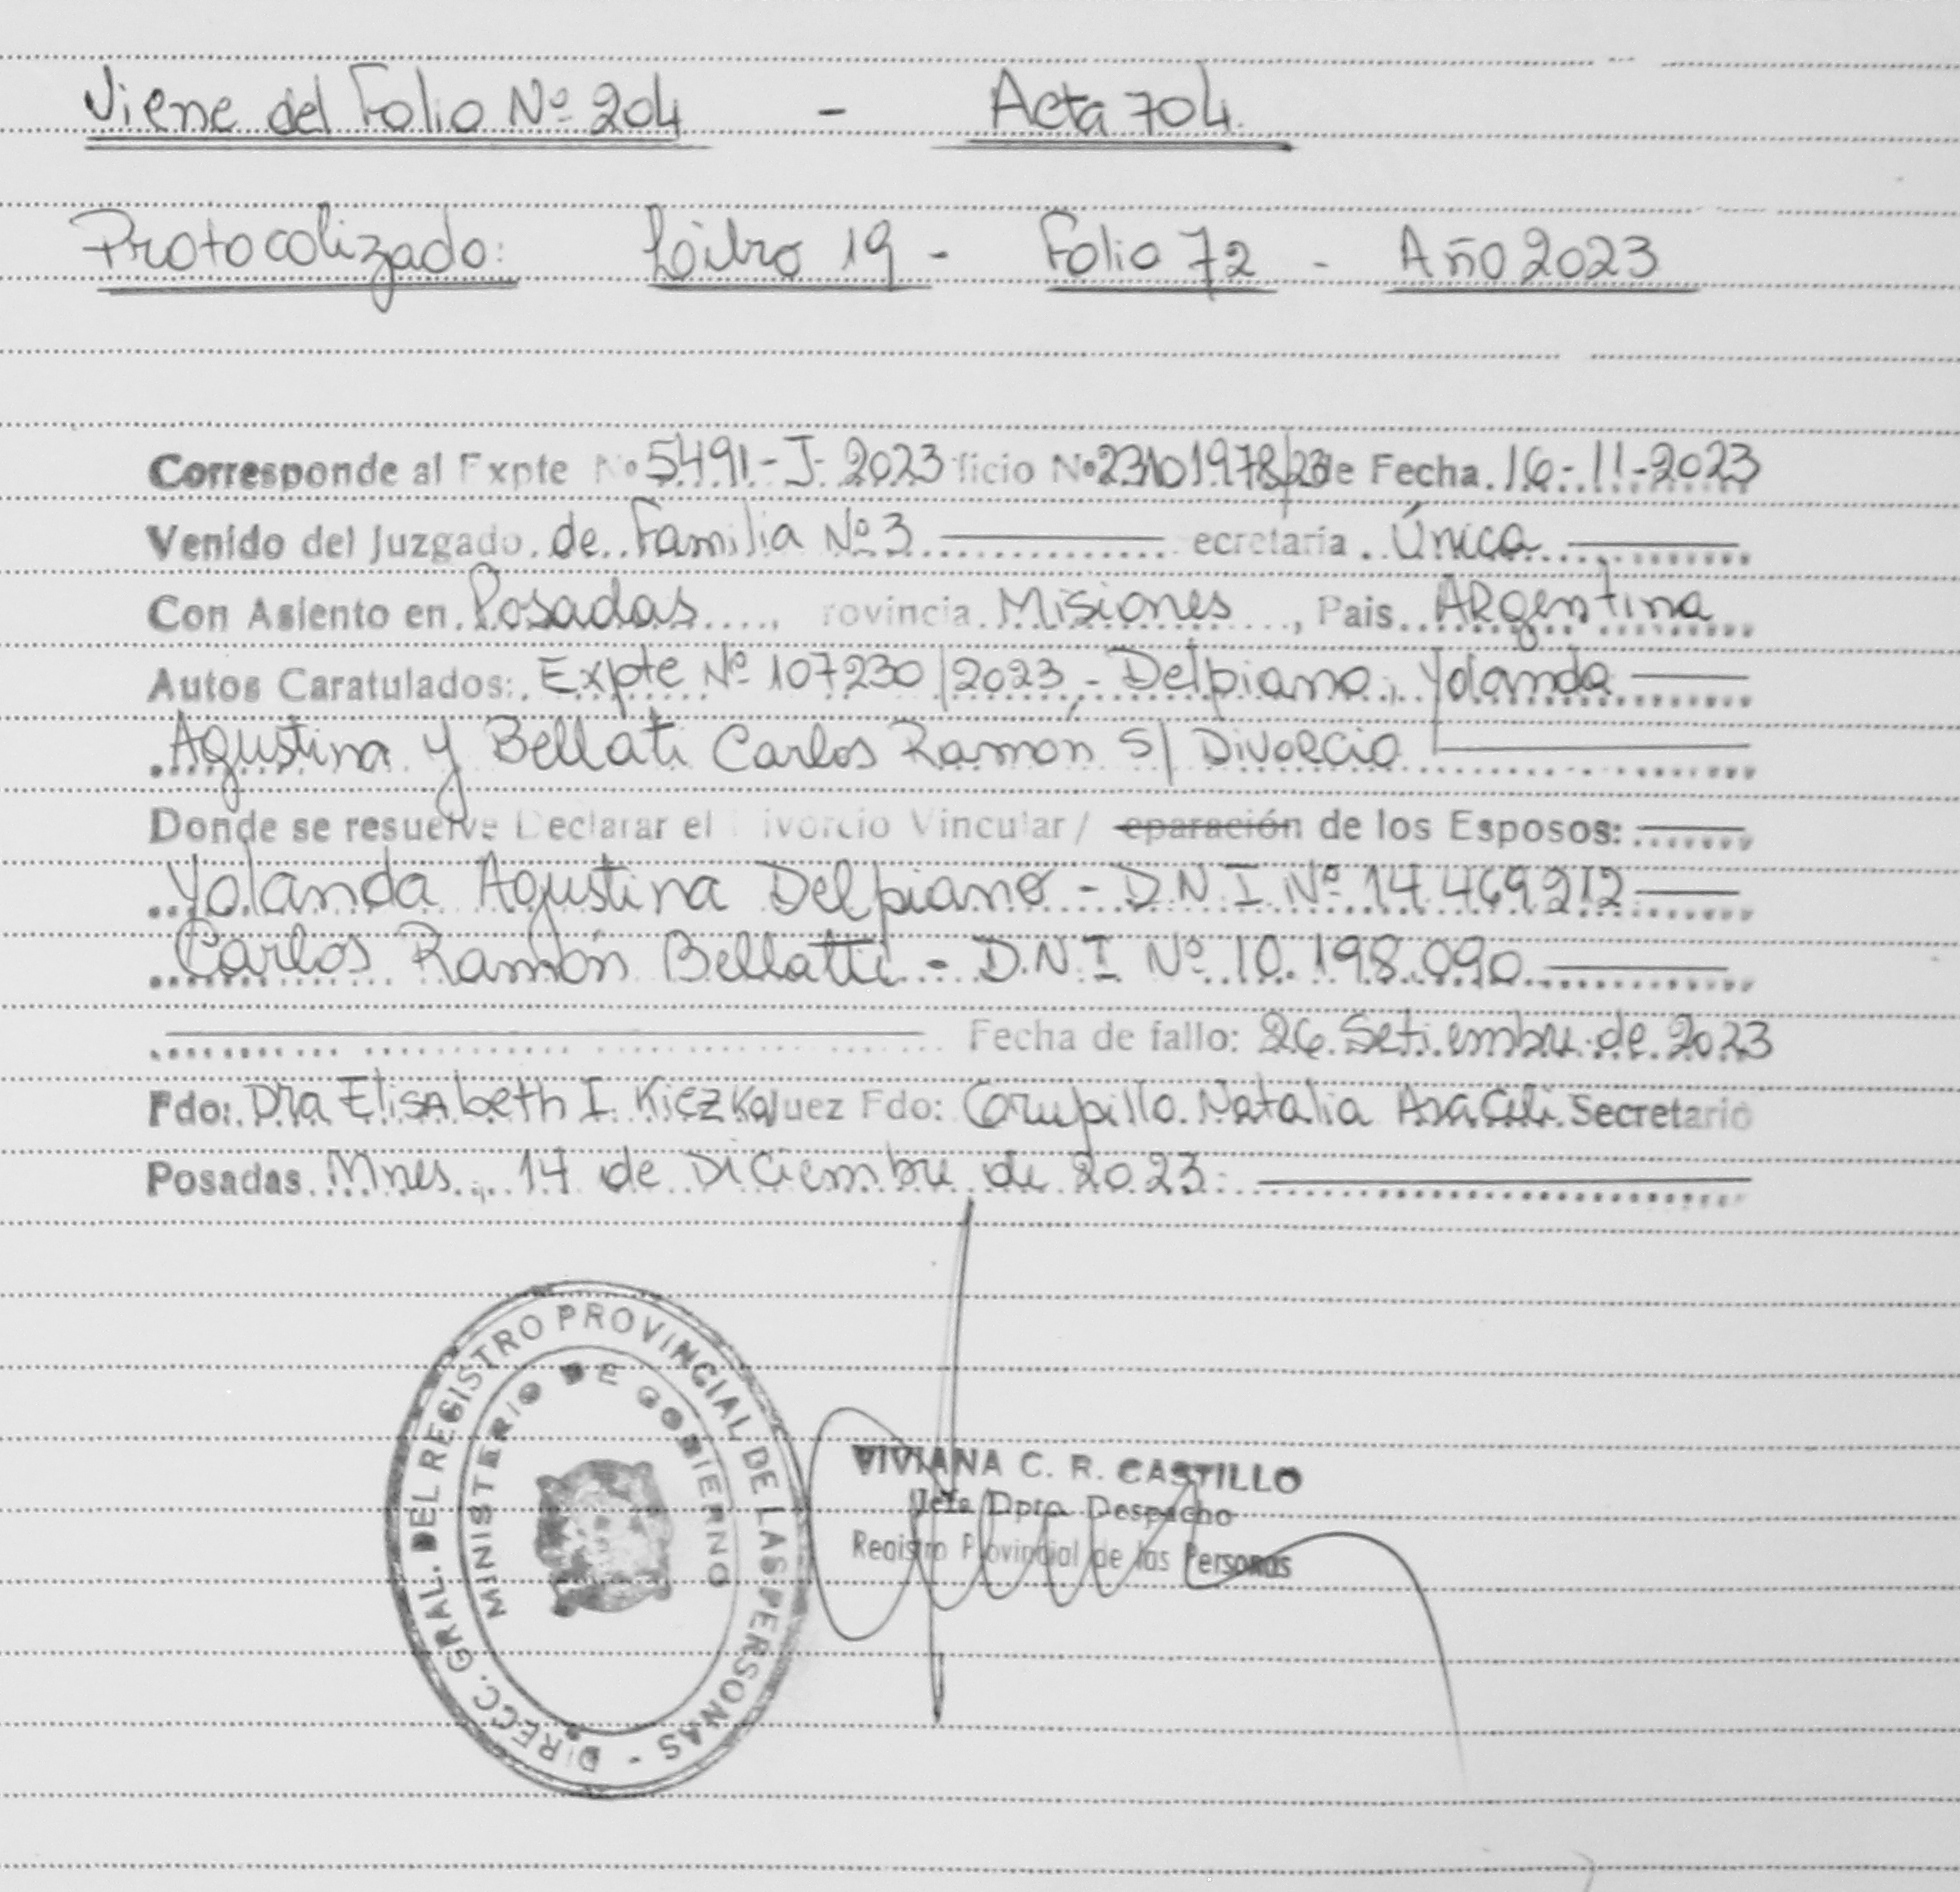 Viene del Folio Nº 204 - Acta 704.
Protocolizado: Libro 19 - Folio 72 - Año 2023
Corresponde al Expte Nº 5491-J-2023 ficio Nº 23101978/23 de Fecha. 16-11-2023
Venido del Juzgado de Familia Nº 3 ecretaría. Única
Con Asiento en. Posadas ...., rovincia. Misiones ..., Pais. Argentina
Autos Caratulados: Expte Nº 107230/2023,- Delpiano, Yolanda
Agustina y Bellati Carlos Ramón S/ Divorcio
Donde se resuelve Declarar el ivorcio Vincular / eparación de los Esposos:
Yolanda Agustina Delpiano - D.N.I Nº 14.469212
Carlos Ramón Bellatti - D.N.I Nº 10.198.090
Fecha de fallo: 26 Setiembre de 2023
Fdo: Dra Elisabeth I. Juez Fdo: Natalia Araceli. Secretario
Posadas. Mnes., 14 de Diciembre de 2023.
DIRECC. GRAL. DEL REGISTRO PROVINCIAL DE LAS PERSONAS -
MINISTERIO DE GOBIERNO
VIVIANA C. R. CASTILLO
Jefa Dpto. Despacho
Registro Provincial de las Personas